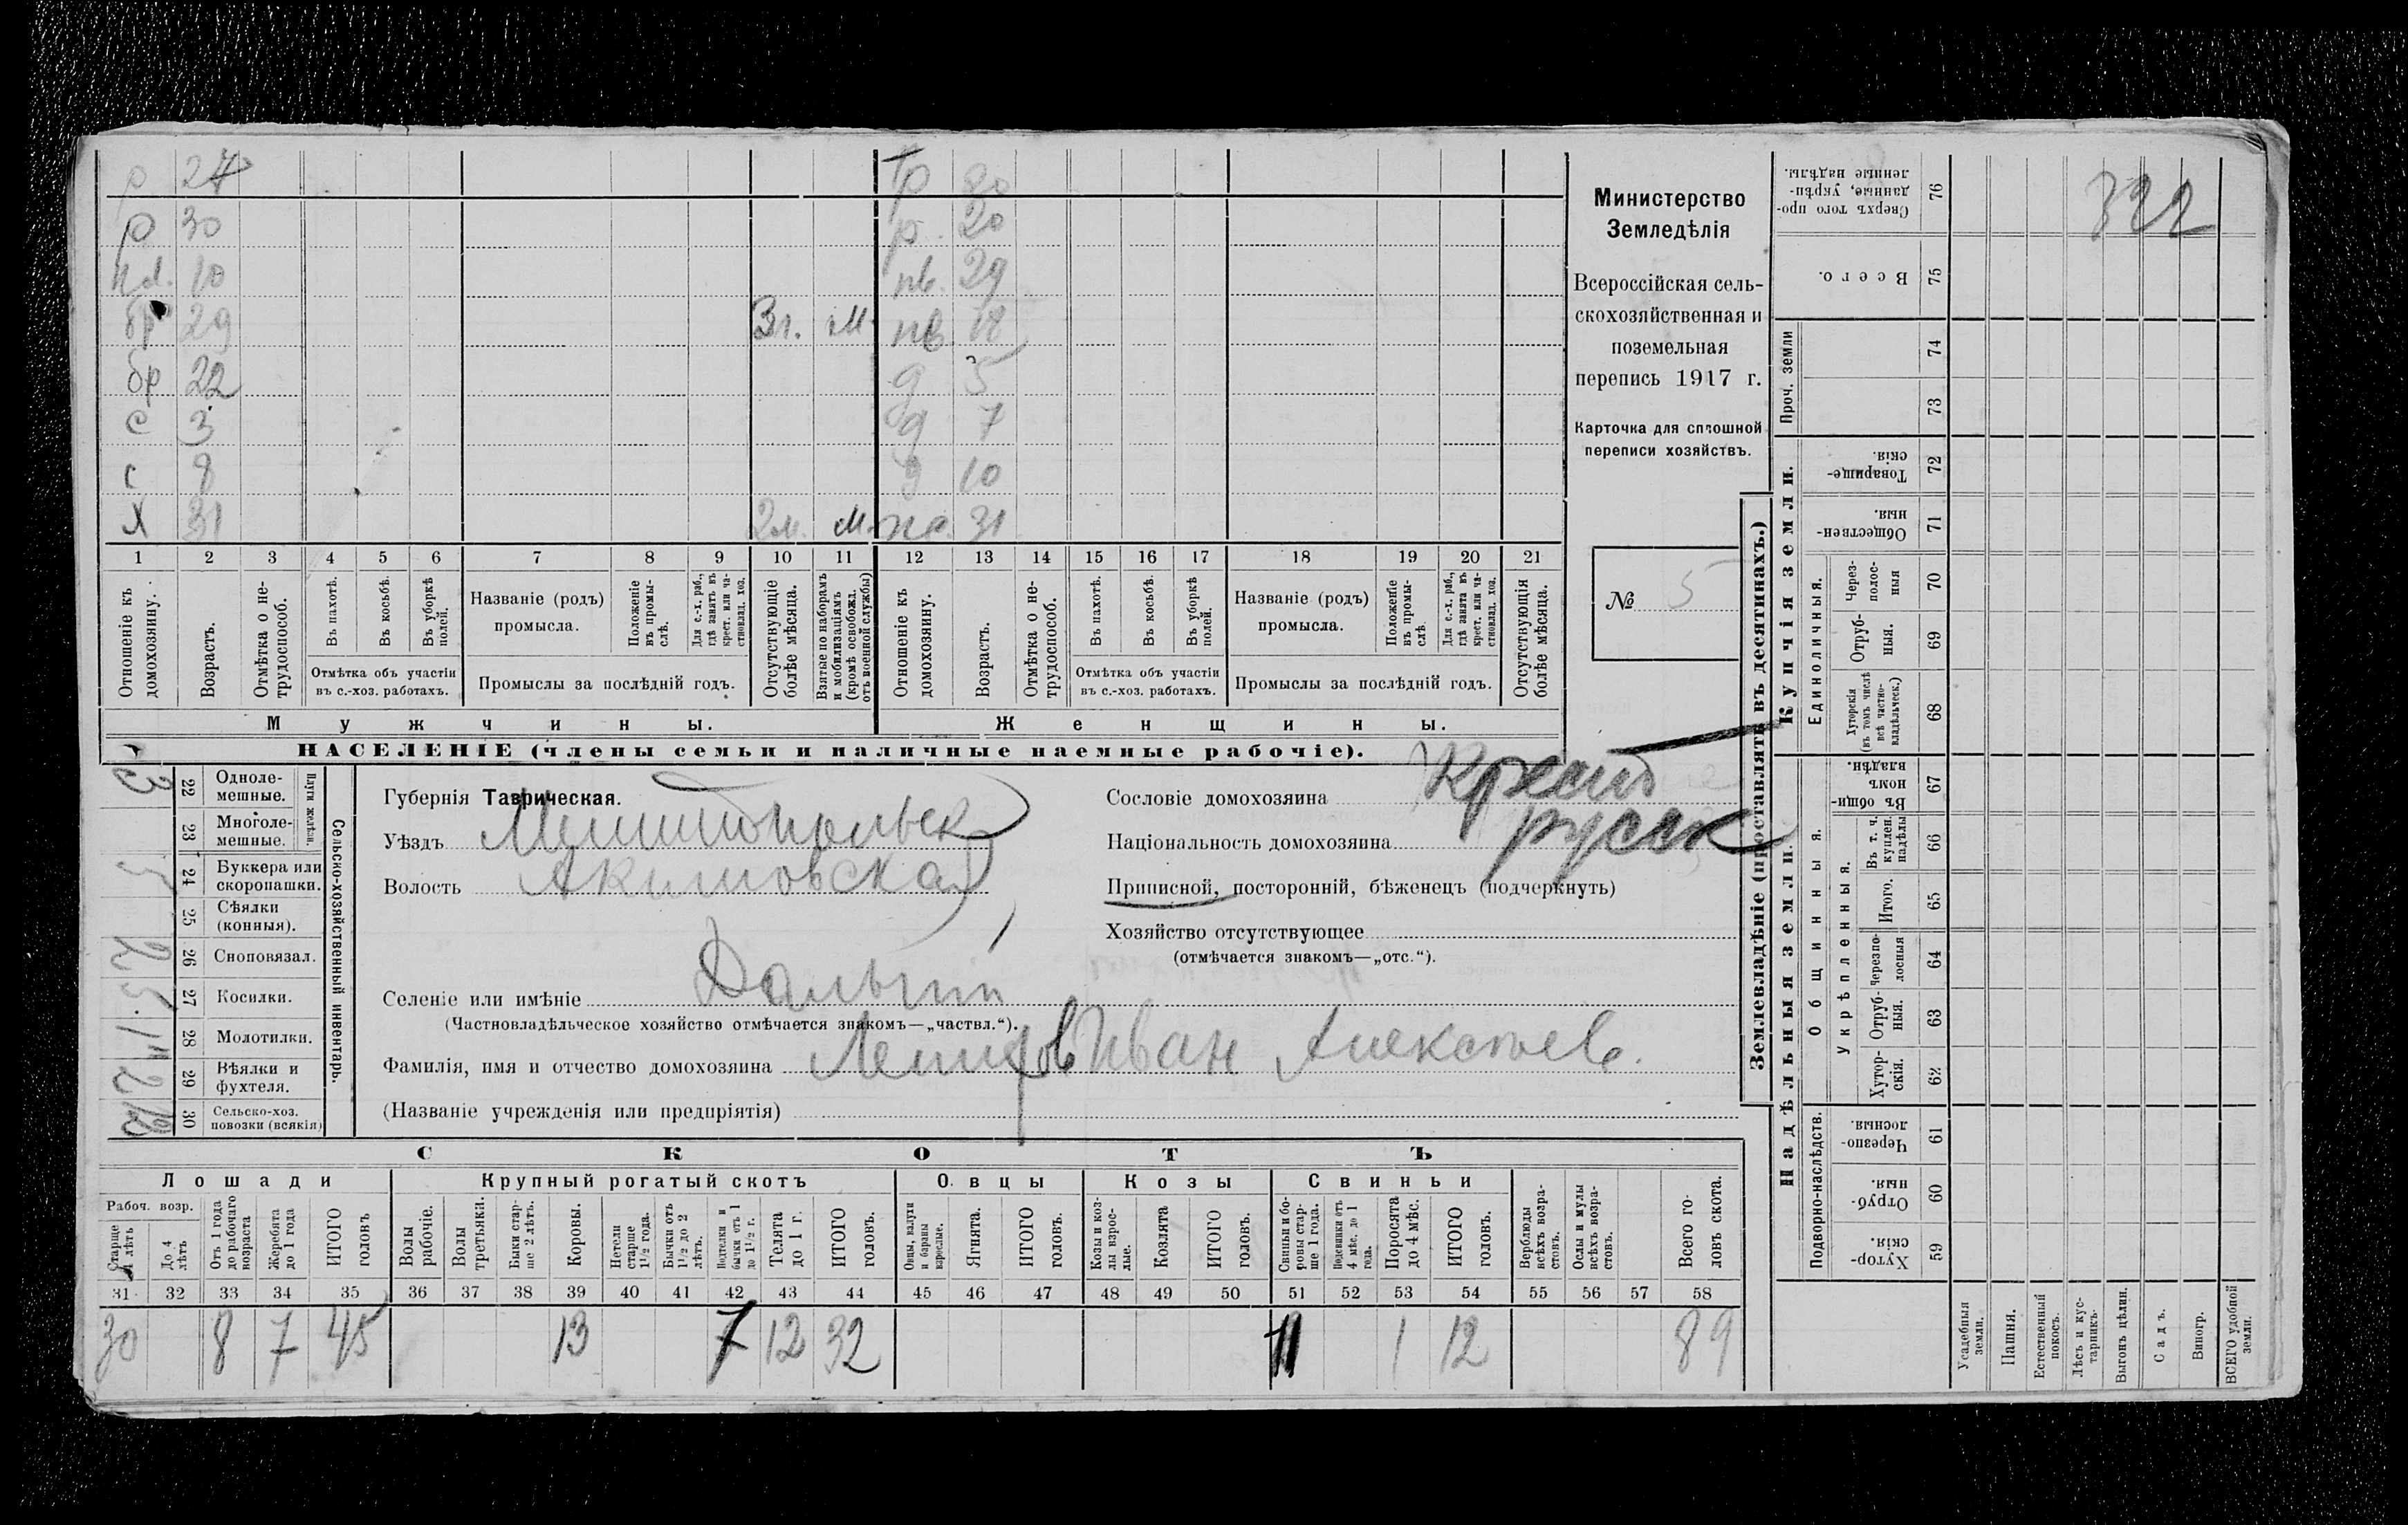 р 24 Тр 80
р 30 р. 20
пл. 10 пв. 29
бр 29 3г. М. пв 18
бр 22 д 5
с 3 д 7
с 8 д 10
Х 31 2м. М. хо. 31
1 2 3 4 5 6 7 8 9 10 11 12 13 14 15 16 17 18 19 20 21
Отношеніе къ домохозяину.
Возрастъ.
Отмѣтка о нетрудоспособ.
Въ пахотѣ.
Въ косьбѣ.
Въ уборкѣ полей.
Отмѣтка объ участіи
въ с.-хоз. работахъ.
Названіе (родъ)
промысла.
Положеніе въ промыслѣ.
Для с.-х. раб., гдѣ занятъ въ крест. или частновлад. хоз.
Промыслы за послѣдній годъ.
Отсутствующіе болѣе мѣсяца.
Взятые по наборамъ и мобилизаціямъ (кромѣ освобожд. отъ военной службы)
Отношеніе къ домохозяину.
Возрастъ.
Отмѣтка о нетрудоспособ.
Въ пахотѣ.
Въ косьбѣ.
Въ уборкѣ полей.
Отмѣтка объ участіи
въ с.-хоз. работахъ.
Названіе (родъ)
промысла.
Положеніе въ промыслѣ.
Для с.-х. раб., гдѣ занята въ крест. или частновлад. хоз.
Промыслы за послѣдній годъ.
Отсутствующія болѣе мѣсяца.
Мужчины. Женщины.
НАСЕЛЕНІЕ (члены семьи и наличные наемные рабочіе).
Министерство
Земледѣлія
Всероссійская сель-
скохозяйственная и
поземельная
перепись 1917 г.
Карточка для сплошной
переписи хозяйствъ.
№ 5
Сельско-хозяйственный инвентарь.
Плуги желѣзн.
3 22 Одноле-
мешные.
23 Многоле-
мешные.
24 Буккера или
скоропашки.
25 Сѣялки
(конныя).
2 26 Сноповязал.
27 Косилки.
1 28 Молотилки.
2 29 Вѣялки и
фухтеля.
30 Сельско-хоз.
повозки (всякія)
Губернія Таврическая.
Уѣздъ Мелитопольск
Волость Акимовская
Селеніе или имѣніе Дальній
(Частновладѣльческое хозяйство отмѣчается знакомъ—„частвл.“).
Фамилія, имя и отчество домохозяина Демидов Иван Алексѣев.
(Названіе учрежденія или предпріятія)
Сословіе домохозяина Крест
Національность домохозяина русск
Приписной, посторонній, бѣженецъ (подчеркнуть)
Хозяйство отсутствующее
(отмѣчается знакомъ—„отс.“).
СКОТЪ
Лошади Крупный рогатый скотъ Овцы Козы Свиньи
Рабоч. возр.
Старше 4 лѣтъ
До 4 лѣтъ
Отъ 1 года до рабочаго возраста
Жеребята до 1 года
ИТОГО головъ
Волы рабочіе.
Волы третьяки.
Быки старше 2 лѣтъ.
Коровы.
Нетели старше 1½ года.
Бычки отъ 1½ до 2 лѣтъ.
Подтелки и бычки отъ 1 до 1½ г.
Телята до 1 г.
ИТОГО головъ.
Овцы, валухи и бараны взрослые.
Ягнята.
ИТОГО головъ.
Козы и козлы взрослые.
Козлята
ИТОГО головъ.
Свиньи и боровы старше 1 года.
Подсвинки отъ 4 мѣс. до 1 года.
Поросята до 4 мѣс.
ИТОГО головъ.
Верблюды всѣхъ возрастовъ.
Ослы и мулы всѣхъ возрастовъ.
Всего головъ скота.
31 32 33 34 35 36 37 38 39 40 41 42 43 44 45 46 47 48 49 50 51 52 53 54 55 56 57 58
30 8 7 45 13 7 12 32 11 1 12 89
Землевладѣніе (проставлять въ десятинахъ.)
Купчія земли.
Надѣльныя земли.
Сверхъ того проданные, укрѣпленные надѣлы. 76
322
Всего. 75
Проч. земли
74
73
Товарищескія. 72
Общественныя. 71
Единоличныя.
Черезполосныя 70
Отрубныя. 69
Хуторскія (въ томъ числѣ всѣ частновладѣльческ.) 68
Общинныя.
Въ общинномъ владѣн. 67
Укрѣпленныя.
Въ т. ч. куплен. надѣлы 66
Итого. 65
Черезполосныя 64
Отрубныя. 63
Хуторскія. 62
Подворно-наслѣдств.
Черезполосныя. 61
Отрубныя. 60
Хуторскія. 59
Усадебныя земли.
Пашня.
Естественный покосъ.
Лѣсъ и кустарникъ.
Выгонъ цѣлин.
Садъ.
Виногр.
ВСЕГО удобной земли.